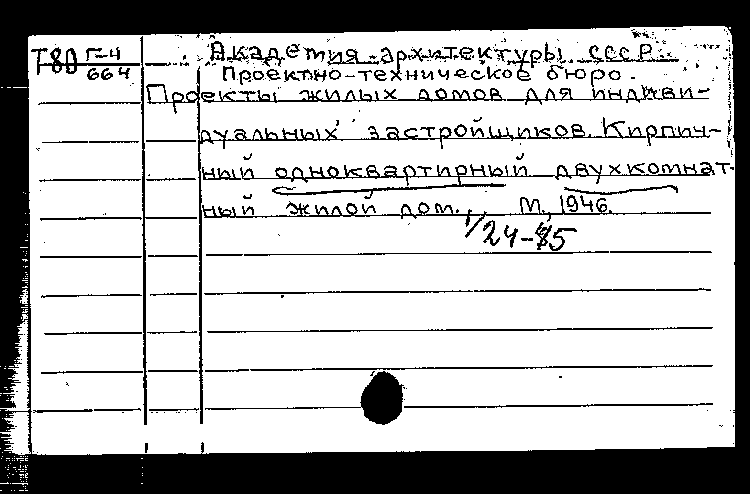 Т80 Г-4
664
Академия архитектуры СССР.
Проектно-техническое бюро.
Проекты жилых домов для индиви-
дуальных застройщиков. Кирпич-
ный одноквартирный двухкомнат-
ный жилой дом. М., 1946.
1/24-85